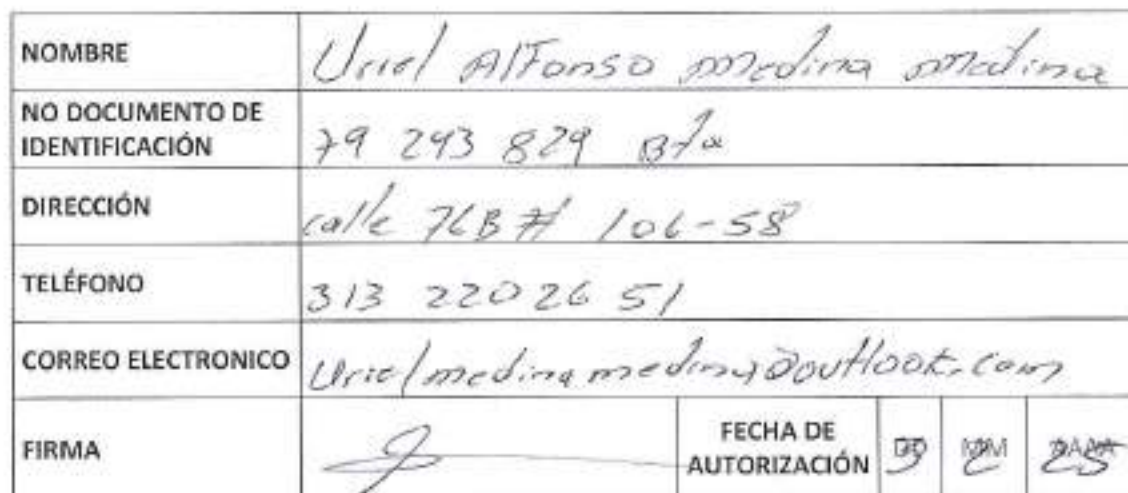 NOMBRE Uriel Alfonso Medina Medina
NO DOCUMENTO DE
IDENTIFICACIÓN 79 293 829 Bta
DIRECCIÓN calle 76B # 106-58
TELÉFONO 313 220 26 51
CORREO ELECTRONICO Urielmedinamedina@outlook.com
FIRMA FECHA DE
AUTORIZACIÓN DD MM AAAA